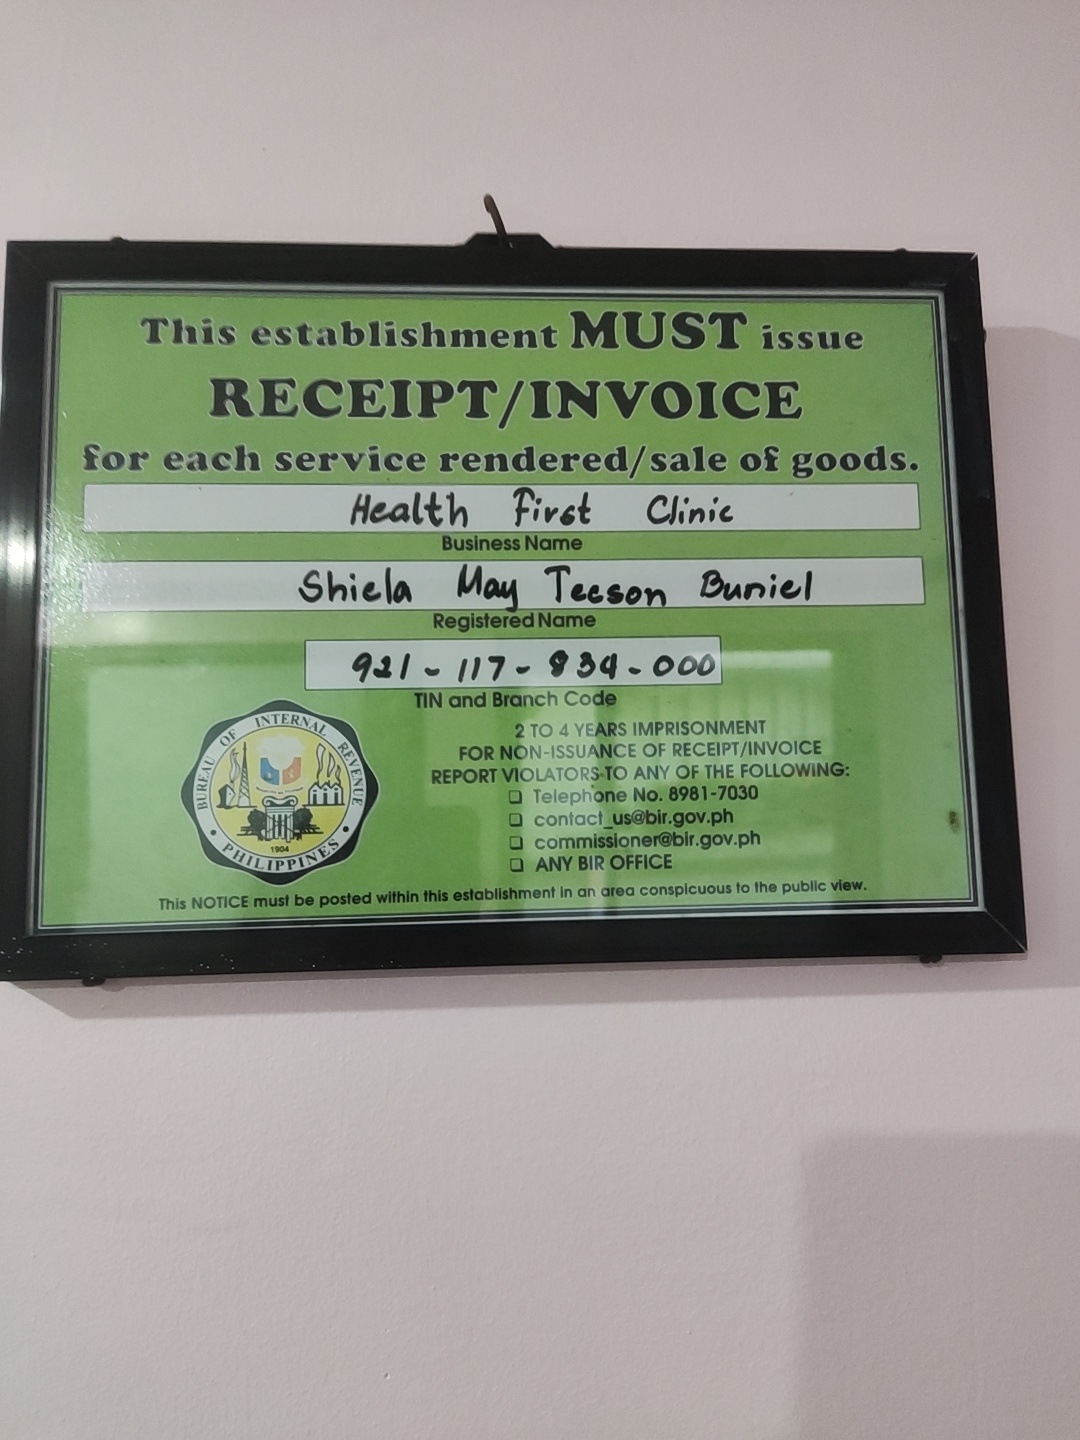 This establishment MUST issue
RECEIPT/INVOICE
for each service rendered/sale of goods.
Health First Clinic
Business Name
Shiela May Teeson Buniel
Registered Name
921-117-834-000
TIN and Branch Code
BUREAU OF INTERNAL REVENUE
1904
PHILIPPINES
2 TO 4 YEARS IMPRISONMENT
FOR NON-ISSUANCE OF RECEIPT/INVOICE
REPORT VIOLATORS TO ANY OF THE FOLLOWING:
❏ Telephone No. 8981-7030
❏ contact_us@bir.gov.ph
❏ commissioner@bir.gov.ph
❏ ANY BIR OFFICE
This NOTICE must be posted within this establishment in an area conspicuous to the public view.